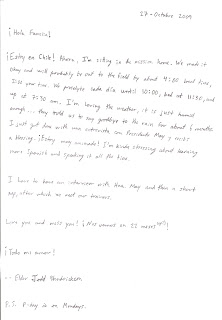 27 - October 2009
¡Hola Familia!
¡Estoy en Chile! Ahora, I'm sitting in the mission home. We made it
okay and will probably be out to the field by about 4:00 local time,
time. We
at 7:30 am. I'm loving the weather, it is just humid
enough... they told us to say goodbye to the rain for about 6 months.
I just got
a blessing. ¡Estoy muy animado! I'm kinda stressing about learning
more Spanish and speaking it all the time.
I have to have an interview with Pres. and then a short
nap, after which we meet our trainers.
Love you and miss you! ¡Nos vemos en 22 meses!
¡Todo mi amor!
-- Elder Todd Hendrickson
P.S. P-day is on Mondays.